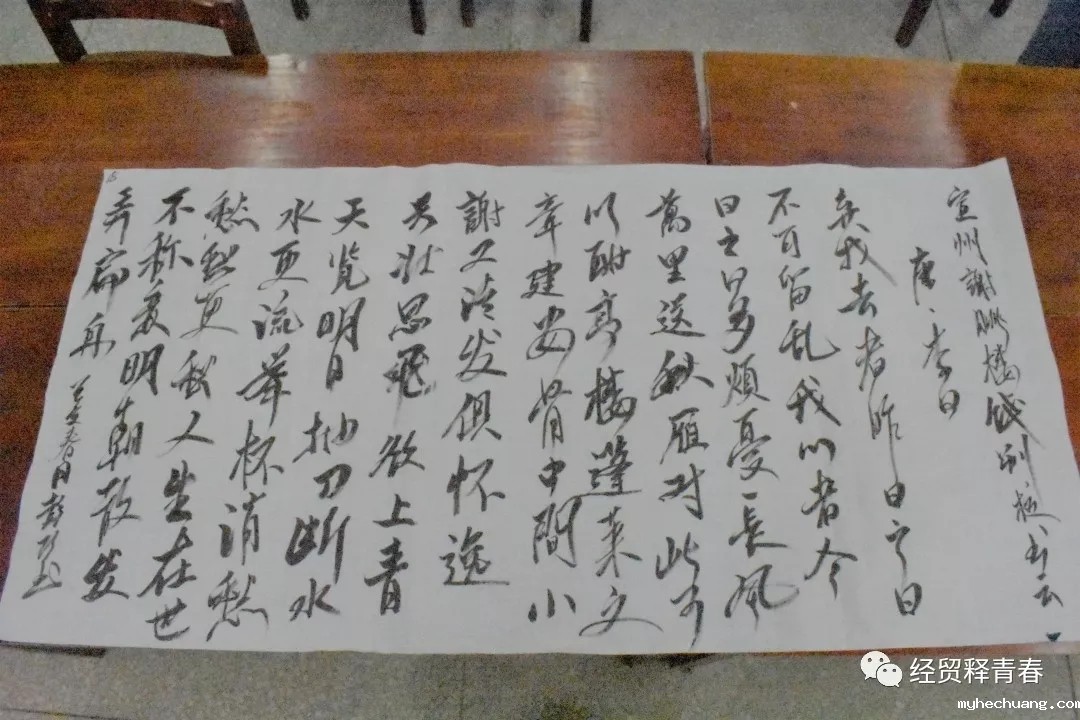 宣州謝朓樓餞别校书云
唐、李白
弃我去者昨日之日
不可留乱我心者今
日之日多煩憂長风
萬里送秋雁对此可
以酣高楼蓬莱文
章建安骨中間小
謝又清发俱怀逸
兴壮思飛欲上青
天览明日抽刀断水
水更流举杯消愁
愁愁更愁人生在世
不称意明朝散发
弄扁舟
春月
经贸释青春
myhechuang.com